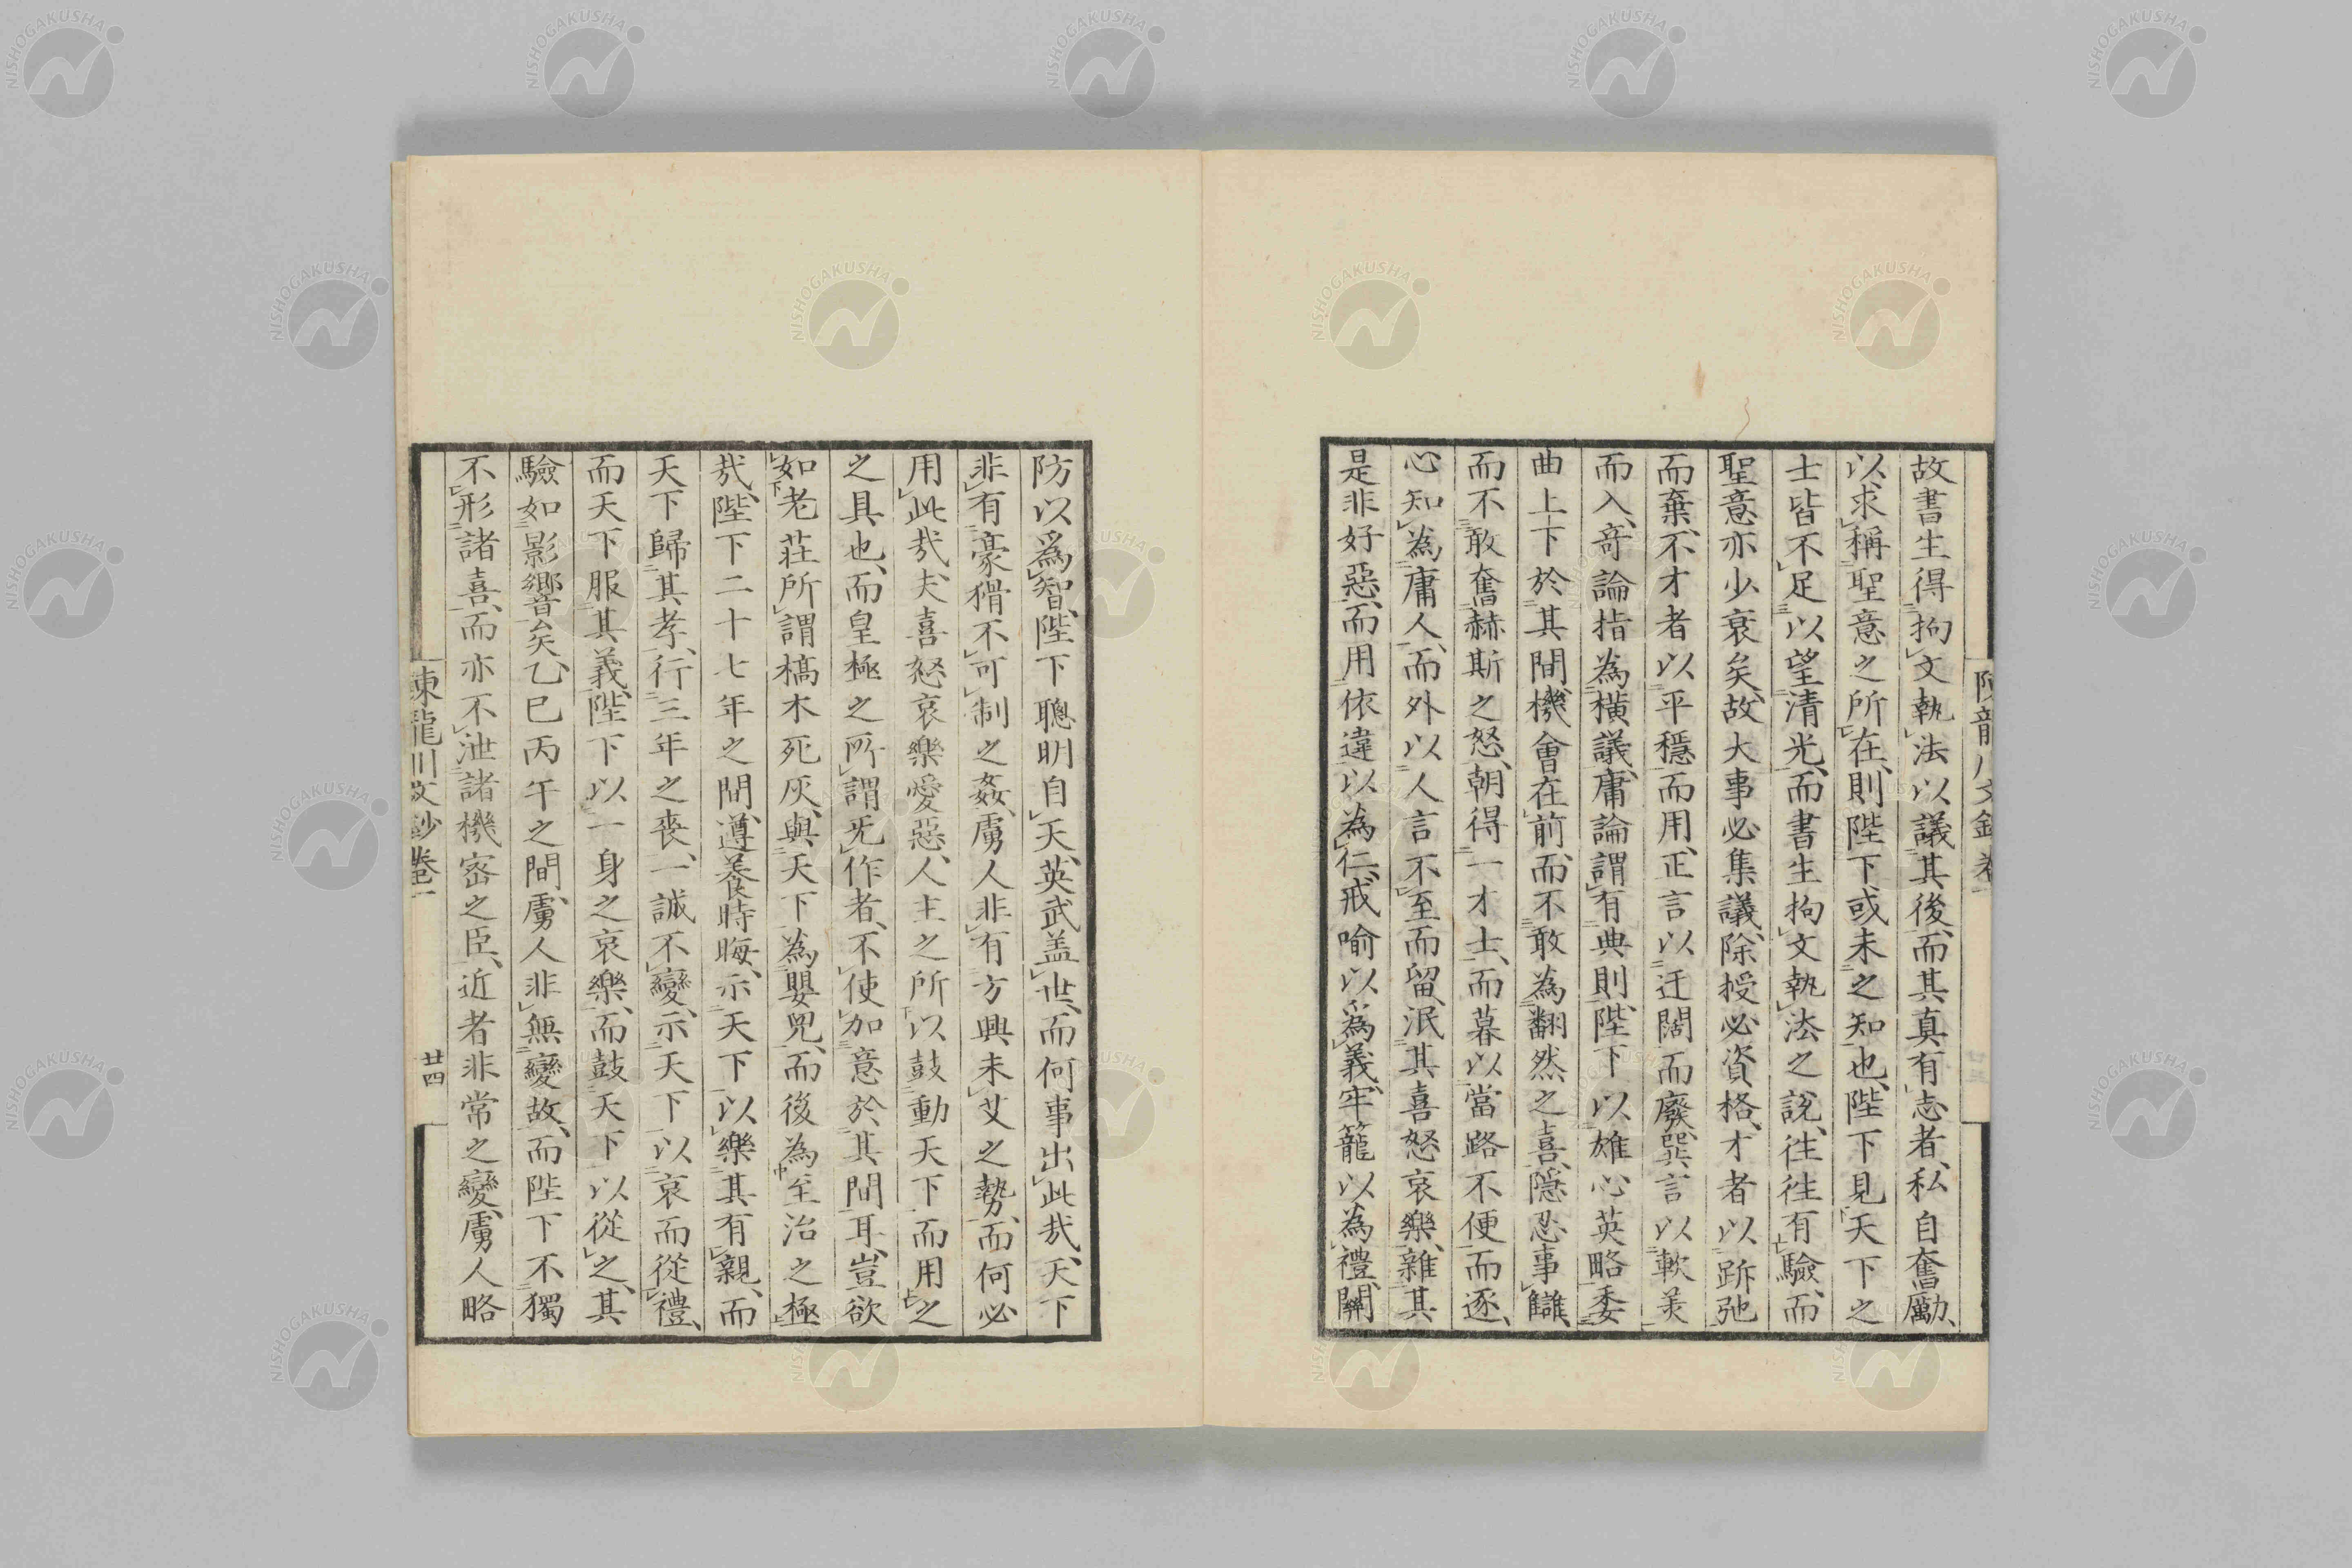 故書生得拘文執法以議其後、而其真有志者、私自奮勵、
以求稱聖意之所在、則陛下或未之知也、陛下見天下之
士皆不足以望清光、而書生拘文執法之說、往往有驗、而
聖意亦少衰矣、故大事必集議、除授必資格、才者以跅弛
而棄、不才者以平穩而用、正言以迂闊而廢、巽言以軟美
而入、奇論指為橫議、庸論謂有典則、陛下以雄心英略、委
曲上下於其間、機會在前、而不敢為翻然之喜、隠忍事讎、
而不敢奮赫斯之怒、朝得一才士、而暮以當路不便而逐、
心知為庸人、而外以人言不至而留、泯其喜怒哀樂、雜其
是非好惡、而用依違以為仁、戒喻以為義、牢籠以為禮、關
防以為智、陛下聰明自天、英武盖世、而何事出此哉、天下
非有豪猾不可制之姦、虜人非有方興未艾之勢、而何必
用此哉、夫喜怒哀樂愛惡、人主之所以鼓動天下而用之
之具也、而皇極之所謂旡作者、不使加意於其間耳、豈欲
如老莊所謂槁木死灰、與天下為嬰兒、而後為至治之極
哉、陛下二十七年之間、遵養時晦、示天下以樂其有親、而
天下歸其孝、行三年之喪、一誠不變、示天下以哀而從禮、
而天下服其義、陛下以一身之哀樂、而鼓天下以從之、其
驗如影響矣、乙巳丙午之間、虜人非無變故、而陛下不獨
不形諸喜、而亦不泄諸機密之臣、近者非常之變、虜人略
陳龍川文鈔卷一
廿四
NISHOGAKUSHA